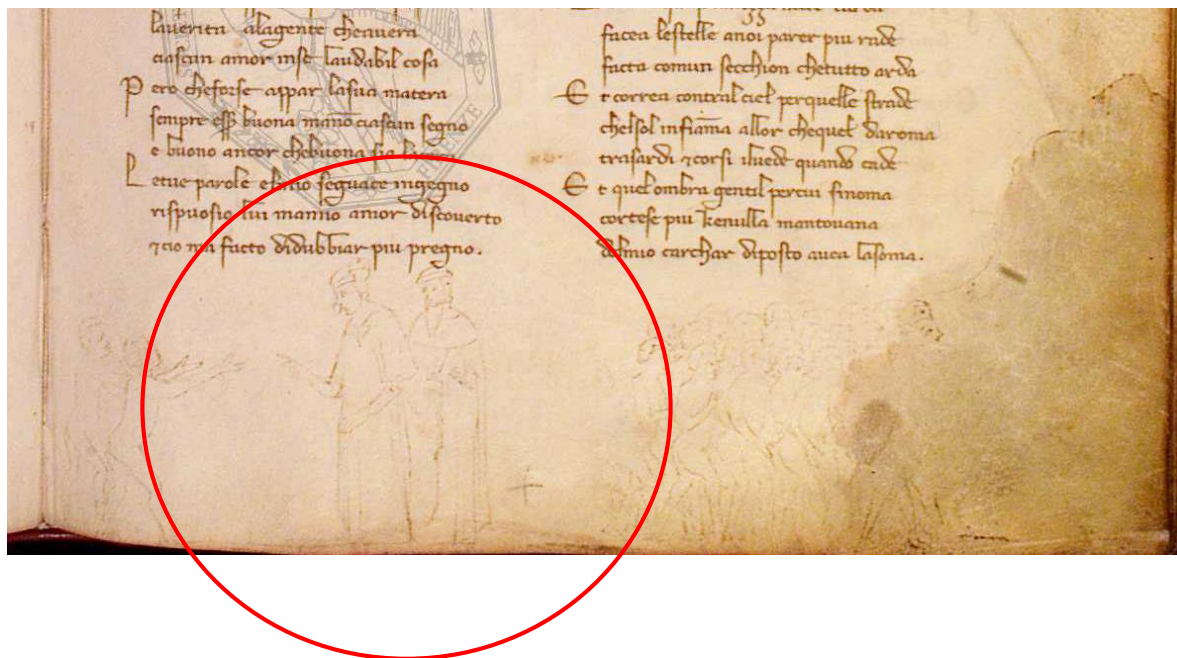 lauerita alagente cheauera
ciascun amor inse laudabil cosa
Pero cheforse appar lasua matera
sempre buona manō ciascun segno
e buono ancor chebuona sia
Letue parole elmio seguace ingegno
rispuosio lui mannio amor discouerto
⁊cio ma facto didubbiar piu pregno.
facea lestelle anoi parer piu rade
facta comun secchion chetutto arda
Et correa contral ciel perquelle strade
chelsol infiāma allor chequel daroma
trasardi ⁊corsi iluede quando cade
Et quel ombra gentil percui sinoma
cortese piu kenulla mantouana
delmio carchar diposto auea lasoma.
FIRENZE